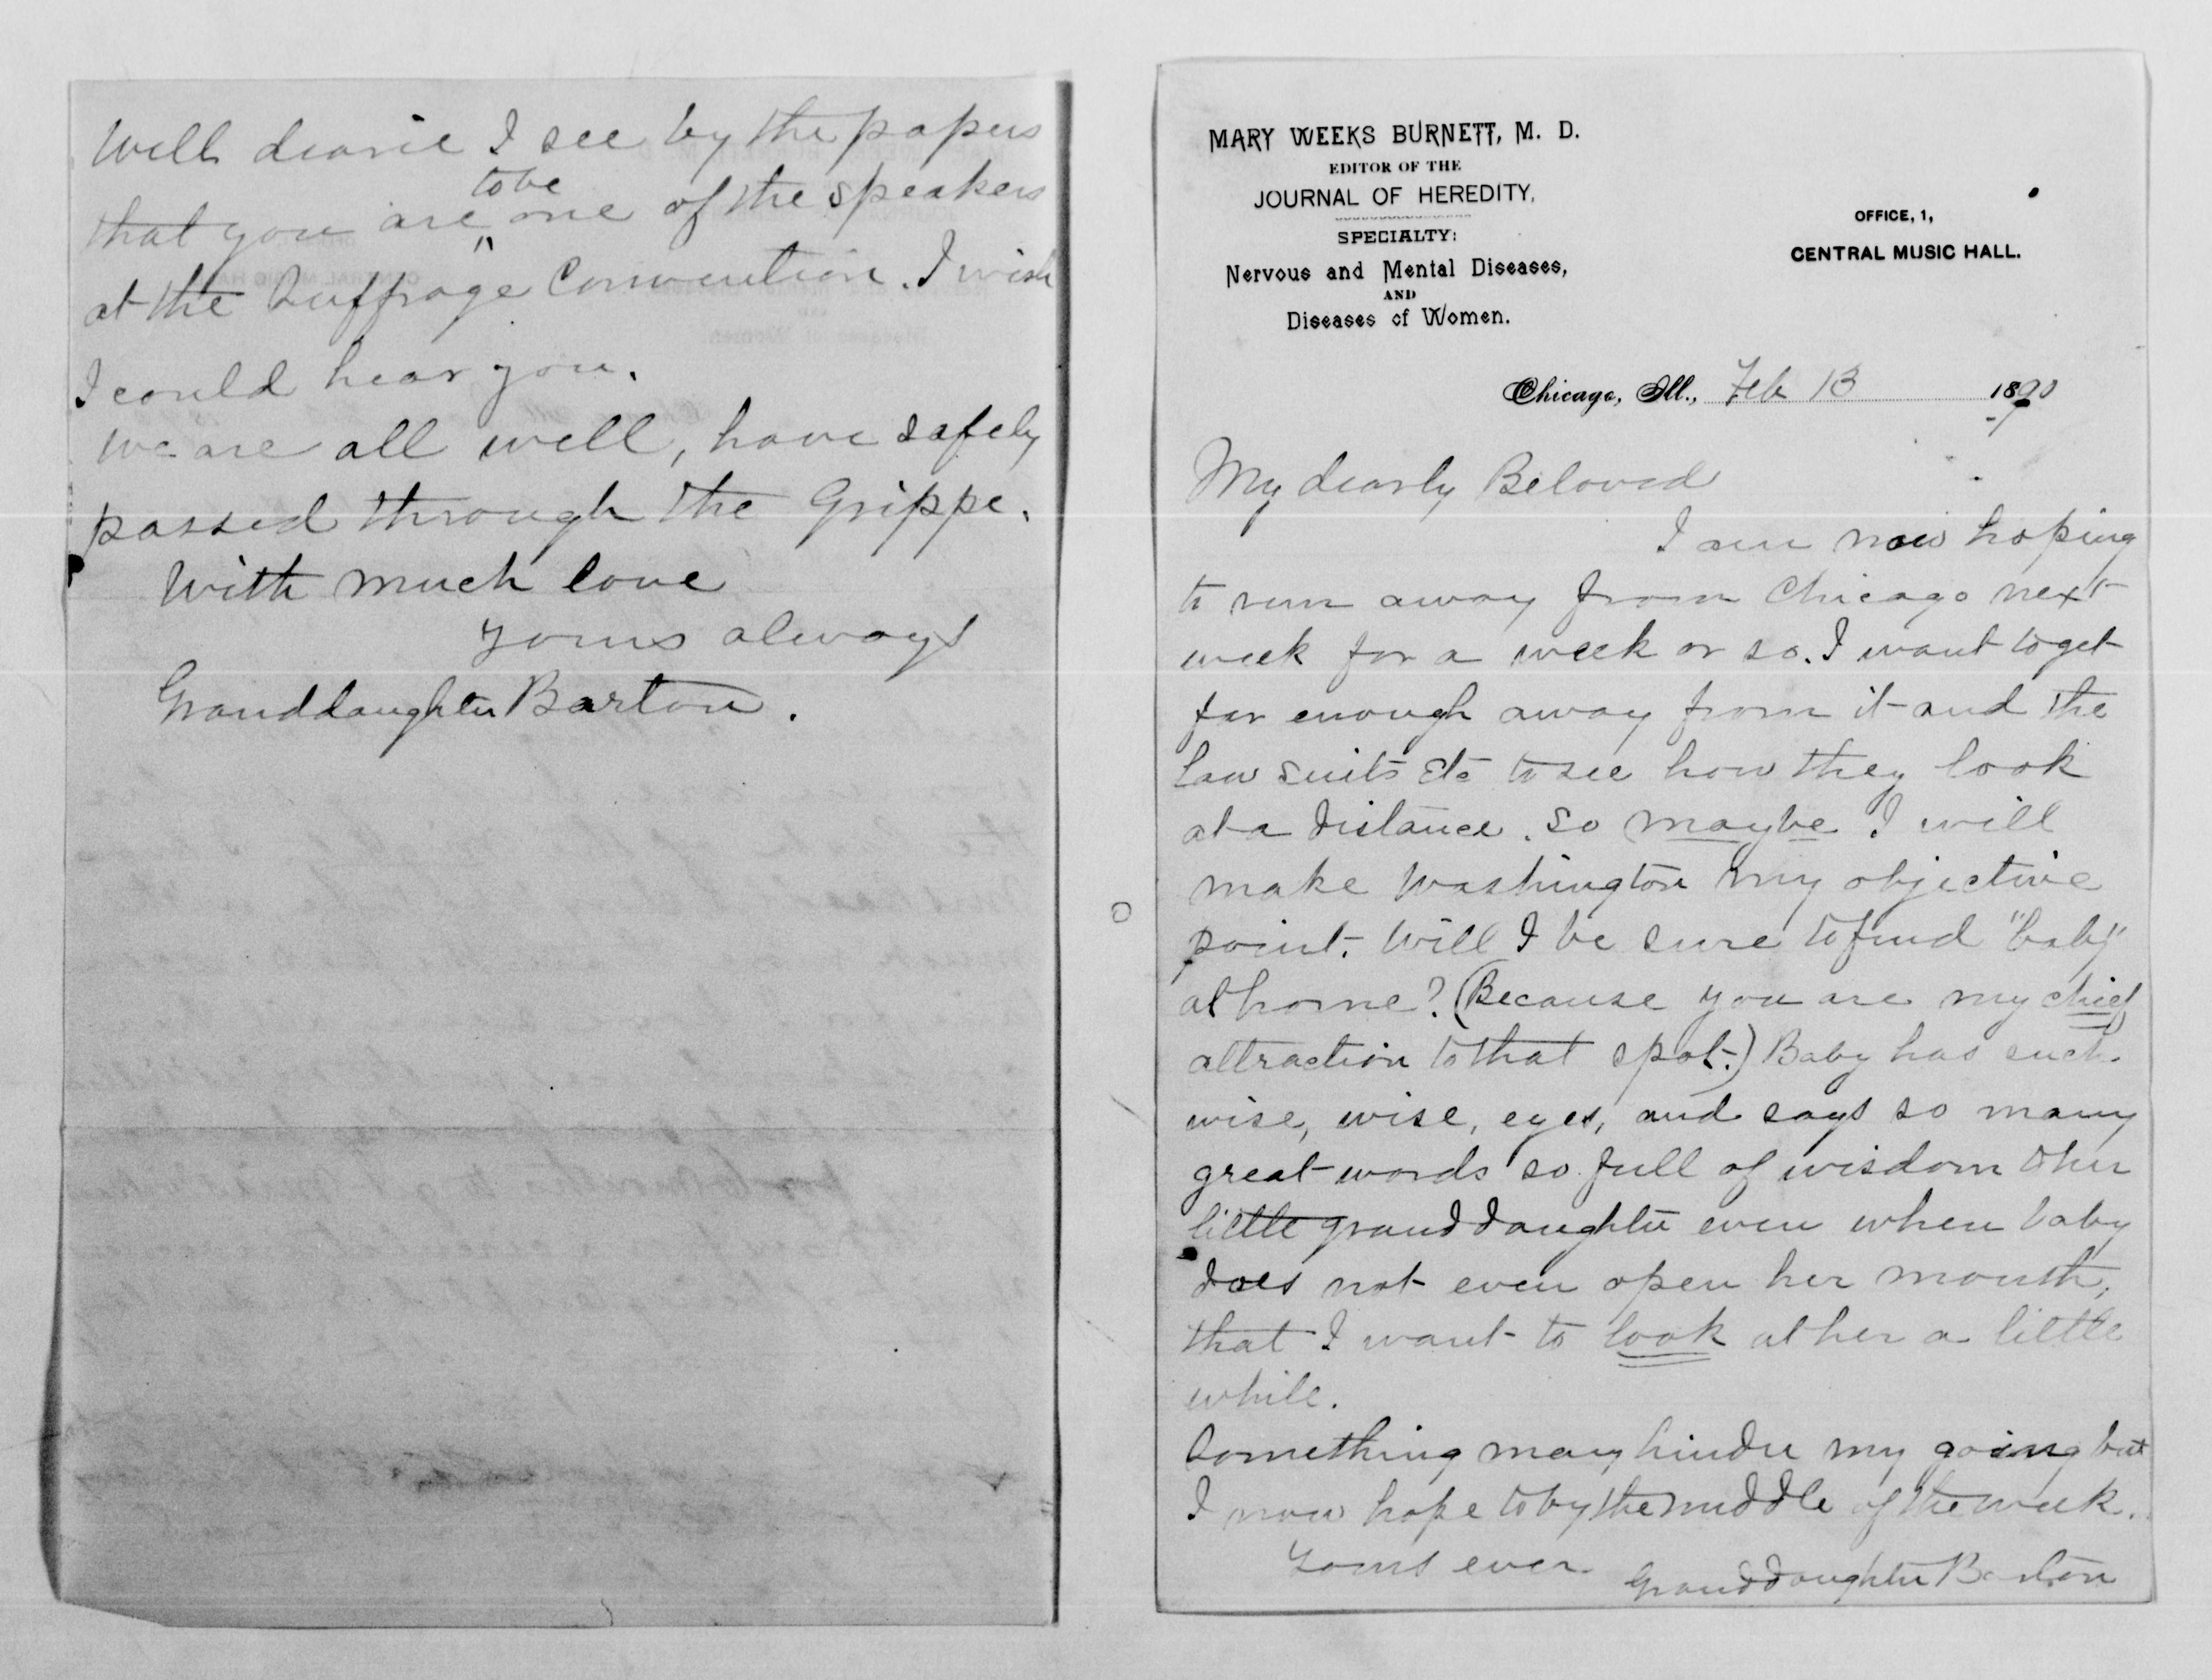 Well dearie I see by the papers
that you are to be one of the speakers
at the Suffrage Convention. I wish
I could hear you.
We are all well, have safely
passed through the Grippe.
With much love
Yours always
Granddaughter Barton.
MARY WEEKS BURNETT, M. D.
EDITOR OF THE
JOURNAL OF HEREDITY,
SPECIALTY:
Nervous and Mental Diseases,
AND
Diseases of Women.
OFFICE, 1,
CENTRAL MUSIC HALL.
Chicago, Ill., Feb 13 1890
My dearly Beloved
I am now hoping
to run away from Chicago next
week for a week or so. I want to get
far enough away from it and the
law suits etc to see how they look
at a distance. So maybe I will
make Washington my objective
point. Will I be sure to find "baby"
at home? (Because you are my chief
attraction to that spot.) Baby has such
wise, wise, eyes, and says so many
great words so full of wisdom to her
little granddaughter even when baby
does not even open her mouth,
that I want to look at her a little
while.
Something may hinder my going but
I now hope to by the middle of the week.
Yours ever Granddaughter Barton